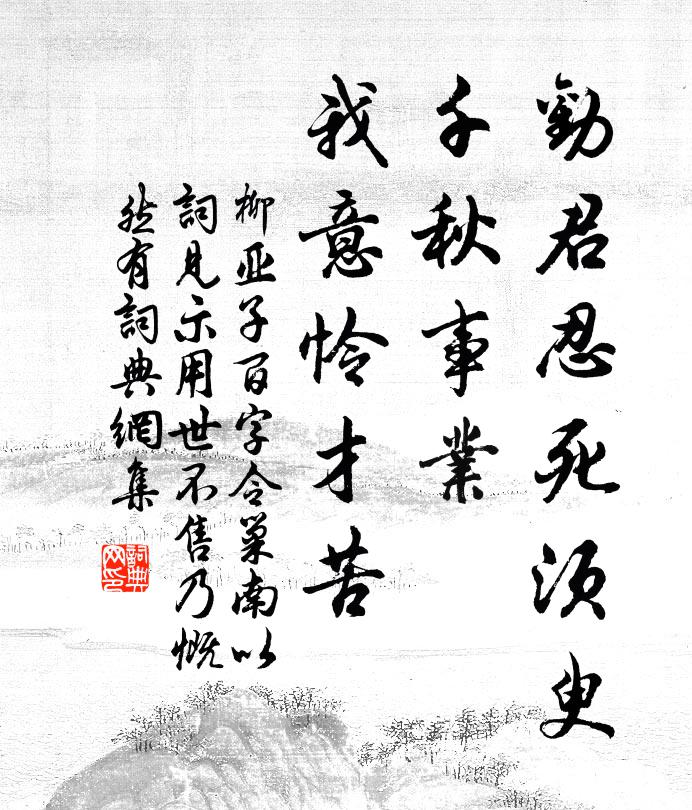 勸君忍死須臾
千秋事業
我意怜才苦
柳亚子百字令巢南以
詞見示用世不售乃慨
然有詞典網集
詞典
网印